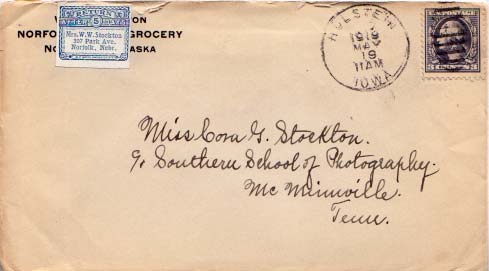 RETURN
AFTER 5 DAYS
Mrs. W. W. Stockton
307 Park Ave.
Norfolk, Nebr.
ON
NORFO GROCERY
NO ASKA
HOLSTEIN
1919
MAY
19
11 AM
IOWA
Miss Cora G. Stockton.
% Southern School of Photography.
Mc Minnville.
Tenn.